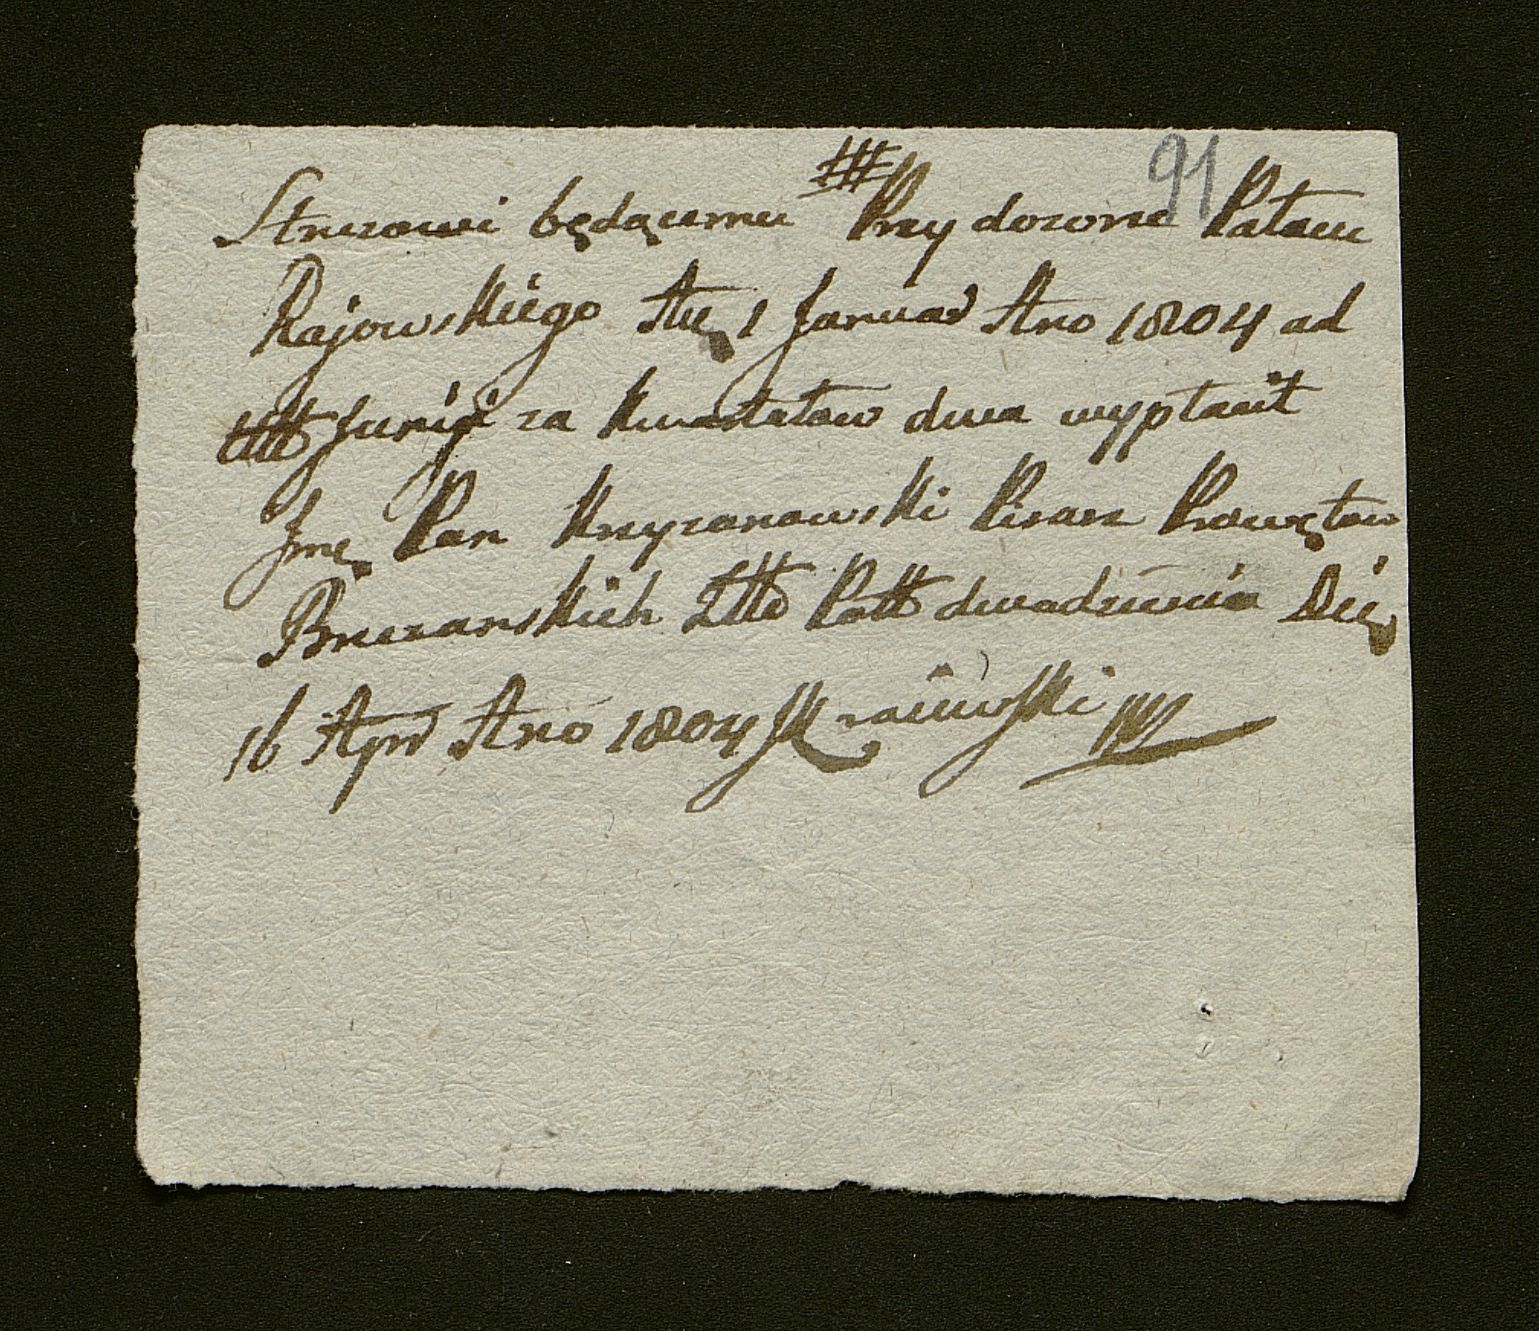 91
Struzowi będącemu Przy dozorze Pałacu
Rajowskiego Die 1 Januar Ano 1804 ad
Ult Junij za Kwartałow dwa wypłacił
Jmę Pan Krzyzanowski Pisarz Prowętow
Brzezanskich Poll dwadziescia Die
16 Apr Ano 1804